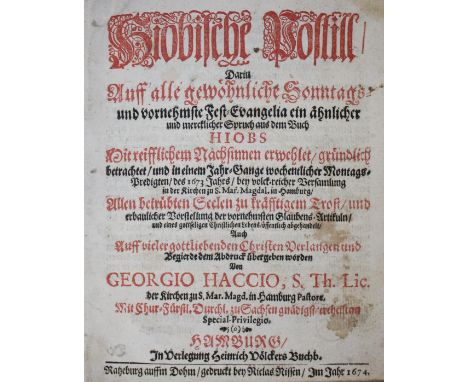 Hiobische Postill/
Darin
Auff alle gewöhnliche Sonntags-
und vornehmste Fest-Evangelia ein ähnlicher
und mercklicher Spruch aus dem Buch
HIOBS
Mit reifflichem Nachsinnen erwehlet/ gründlich
betrachtet/ und in einem Jahr-Gange wochentlicher Montags-
Predigten/ des 1673 Jahrs/ bey volck-reicher Versamlung
in der Kirchen zu S. Mar. Magdal. in Hamburg/
Allen betrübten Seelen zu kräfftigem Trost/ und
erbaulicher Vorstellung der vornehmsten Glaubens-Artikuln/
und eines gottseligen Christlichen Lebens/ öffentlich abgehandelt/
Auch
Auff vieler gottliebenden Christen Verlangen und
Begierde dem Abdruck übergeben worden
Von
GEORGIO HACCIO, S. Th. Lic.
der Kirchen zu S. Mar. Magd. in Hamburg Pastore.
Mit Chur-Fürstl. Durchl. zu Sachsen gnädigst/ ertheiltem
Special-Privilegio.
(o)
HAMBURG/
In Verlegung Heinrich Völckers Buchh.
Ratzeburg auffm Dohm/ gedruckt bey Niclas Nissen/ Im Jahr 1674.